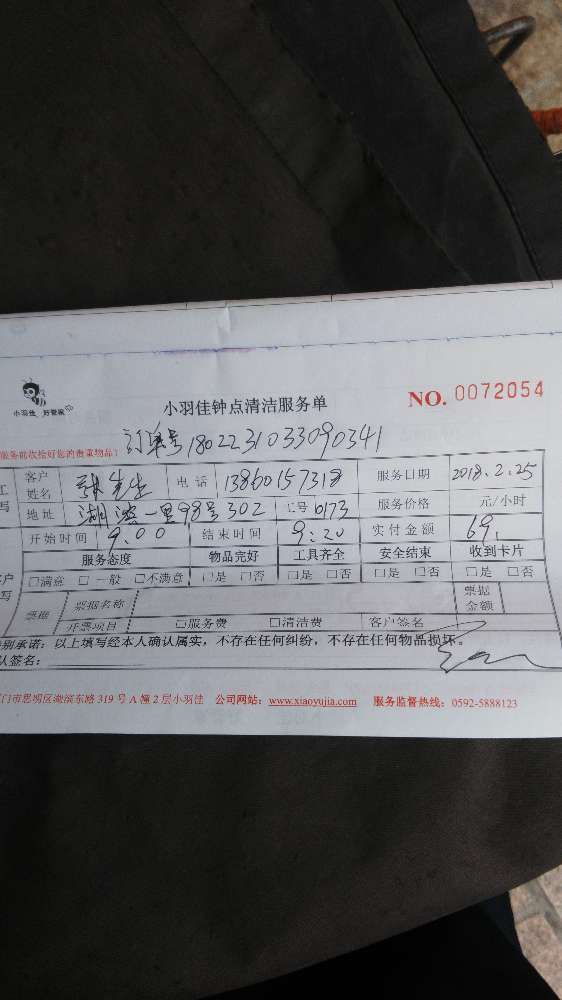 小羽佳 好管家
小羽佳钟点清洁服务单
NO. 0072054
订单号 18022310330 90341
服务前收拾好您的贵重物品)
工 客户姓名 张先生 电话 13860157318 服务日期 2018.2.25
写 地址 湖滨一里98号302 工号 0173 服务价格 元/小时
开始时间 9:00 结束时间 9:20 实付金额 69
服务态度 物品完好 工具齐全 安全结束 收到卡片
户 □满意 □一般 □不满意 □是 □否 □是 □否 □是 □否 □是 □否
写 票据 票据名称 票据金额
开票项目 □服务费 □清洁费 客户签名
别承诺：以上填写经本人确认属实，不存在任何纠纷，不存在任何物品损坏。
认签名：
门市思明区湖滨东路 319 号 A 幢 2 层小羽佳 公司网站：www.xiaoyujia.com 服务监督热线：0592-5888123